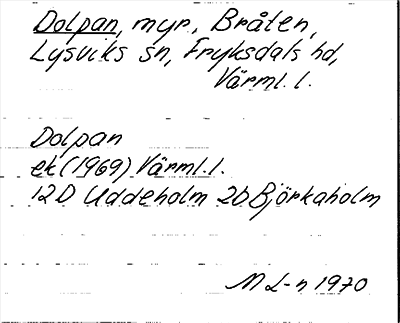 Dolpan, myr, Bråten,
Lysviks sn, Fryksdals hd,
Värml. l.
Dolpan
ek (1969) Värml. l.
12D Uddeholm 2b Björkaholm
M L-n 1970